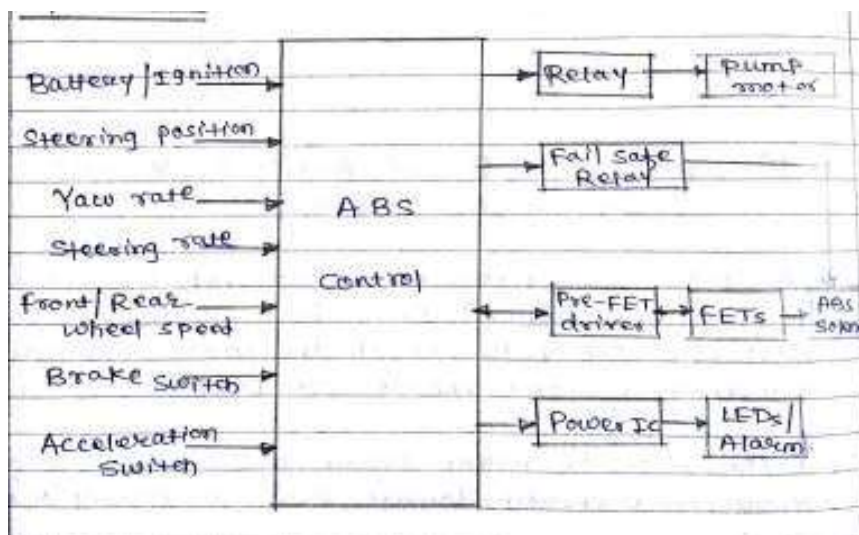 Battery/Ignition
Steering position
Yaw rate
Steering rate
Front/Rear
wheel speed
Brake switch
Acceleration
Switch
ABS
Control
Relay
Pump
motor
Fail safe
Relay
Pre-FET
driver
FETs
ABS
Power Ic
LEDs/
Alarm